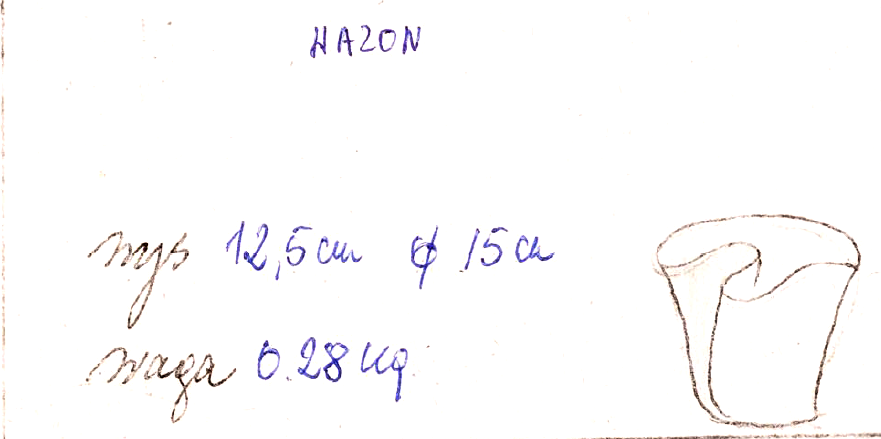 WAZON
wys 12,5 cm ϕ 15 cm
waga 0.28 kg